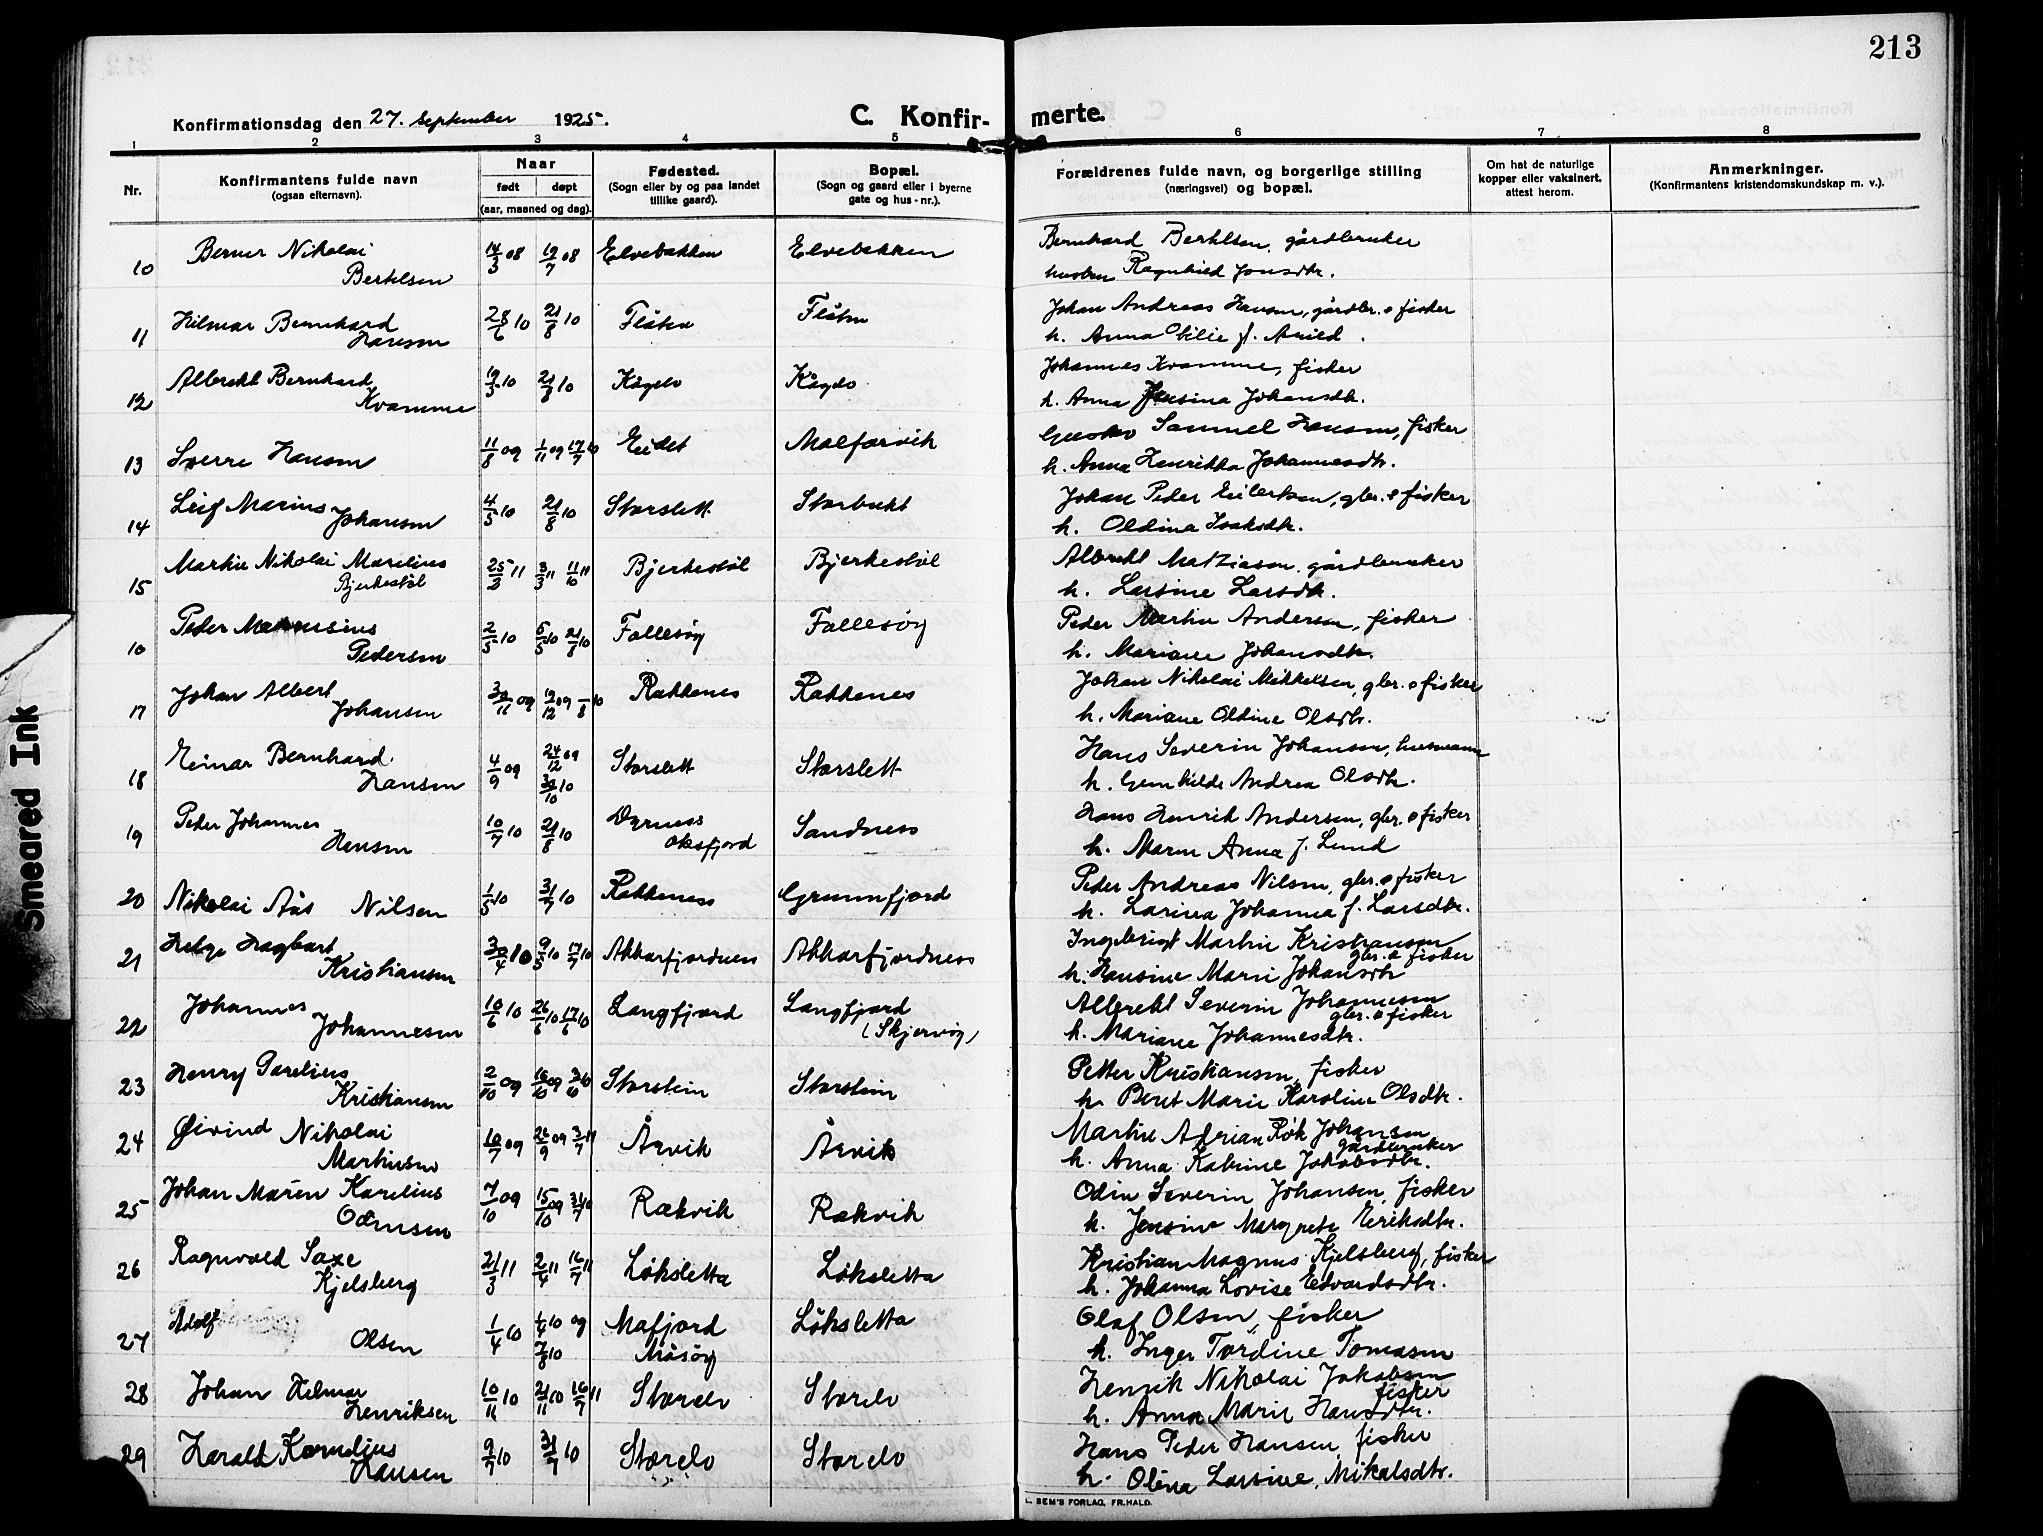 213
Konfirmationsdag den 27. september 1925.
C. Konfir- merte.
1 2 3 4 5 6 7 8
Nr.
Konfirmantens fulde navn
(ogsaa efternavn).
Naar
født døpt
(aar, maaned og dag).
Fødested.
(Sogn eller by og paa landet
tillike gaard).
Bopæl.
(Sogn og gaard eller i byerne
gate og hus-nr.).
Forældrenes fulde navn, og borgerlige stilling
(næringsvei) og bopæl.
Om hat de naturlige
kopper eller vaksinert,
attest herom.
Anmerkninger.
(Konfirmantens kristendomskundskap m. v.).
10 Berner Nikolai 14/3 08 19/7 08 Elvebakken Elvebakken Bernhard Bertelsen, gårdbruker
Bertelsen hustru Ragnhild Jonsdtr.
11 Hilmar Bernhard 28/6 10 21/8 10 Flåten Flåten Johan Andreas Hansen, gårdbr. o fisker
Hansen h. Anna Otilie f. Arild.
12 Albrekt Bernhard 19/3 10 21/8 10 Kågelv Kågelv Johannes Kvamme, fisker
Kvamme h. Anna Jensina Johansdtr.
13 Sverre Hansen 11/8 09 1/11 09 17/7 10 Eidet Malfarvik Gustav Samuel Hansen, fisker
h. Anna Henrikka Johannesdtr.
14 Leif Marius 4/5 10 21/8 10 Storslett Storbukt Johan Peder Eilertsen, gbr. o fisker
Johansen h. Oldina Isaksdtr.
15 Martin Nikolai Marelius 25/2 11 3/3 11 11/6 11 Bjerkestøl Bjerkestøl Albrekt Mattiasen, gårdbruker
Bjerkestøl h. Larsine Larsdtr.
16 Peder 2/5 10 5/5 10 21/8 10 Follesøy Follesøy Peder Martin Andersen, fisker
Pedersen h. Mariane Johansdtr.
17 Johan Albert 30/11 09 19/12 09 1/8 10 Rakkenes Rakkenes Johan Nikolai Mikkelsen, gbr. o fisker
Johansen h. Mariane Oldine Olsdtr.
18 Einar Bernhard 4/9 09 24/12 09 Storslett Storslett Hans Severin Johansen, husmann
Hansen 30/10 10 h. Gunhilde Andrea Olsdtr.
19 Peder Johannes 10/7 10 21/8 10 Sandness Hans Henrik Andersen, gbr. o fisker
Hensen Oksfjord h. Maren Anna f. Lund
20 Nikolai Aas Nilsen 1/5 10 31/7 10 Rakkenes Grunnfjord Peder Andreas Nilsen, gbr. o fisker
h. Larina Johanna f. Larsdtr.
21 Helge Hagbart 30/4 10 9/5 10 17/7 10 Akkarfjordness Akkarfjordness Ingebrigt Martin Kristiansen
Kristiansen gbr. o fisker
h. Hansine Marie Johansdtr
22 Johannes 10/6 10 26/6 10 17/6 10 Langfjord Langfjord Albrekt Severin Johannesen
Johannesen (Skjervøy) gbr. o fisker
h. Mariane Johannesdtr.
23 Henry Parelius 2/10 09 16/10 09 Storstein Storstein Petter Kristiansen, fisker
Kristiansen h. Beret Marie Karoline Olsdtr.
24 Øivind Nikolai 10/7 09 26/9 09 3/7 Årvik Årvik Martin Adrian Røk Johansen
Martinsen gårdbruker
h. Anna Katrine Jakobsdtr.
25 Johan Maren Karelius 7/10 09 15/10 09 31/7 10 Rakvik Rakvik Odin Severin Johansen, fisker
Odinsen h. Jensine Margrete Eriksdtr.
26 Ragnvald Saxe 21/3 11 2/4 11 16/7 11 Løksletta Løksletta Kristian Magnus Kjelsberg, fisker
Kjelsberg h. Johanna Lovise Edvardsdtr.
27 Adolf 1/4 10 1/4 10 og Mafjord Løksletta Olaf Olsen, fisker
Olsen 7/8 10 Måsøy h. Inger Tordine Tomasen
28 Johan Helmar 10/11 10 21/11 10 16/7 11 Storelv Storelv Henrik Nikolai Jakobsen
Henriksen fisker
h. Anna Marie Hansdtr.
29 Harald Kornelius 9/7 10 31/7 10 Storelv Storelv Hans Peder Hansen, fisker
Hansen h. Olena Larsine Mikalsdtr.
L. SEM'S FORLAG, FR.HALD.
Smeared Ink